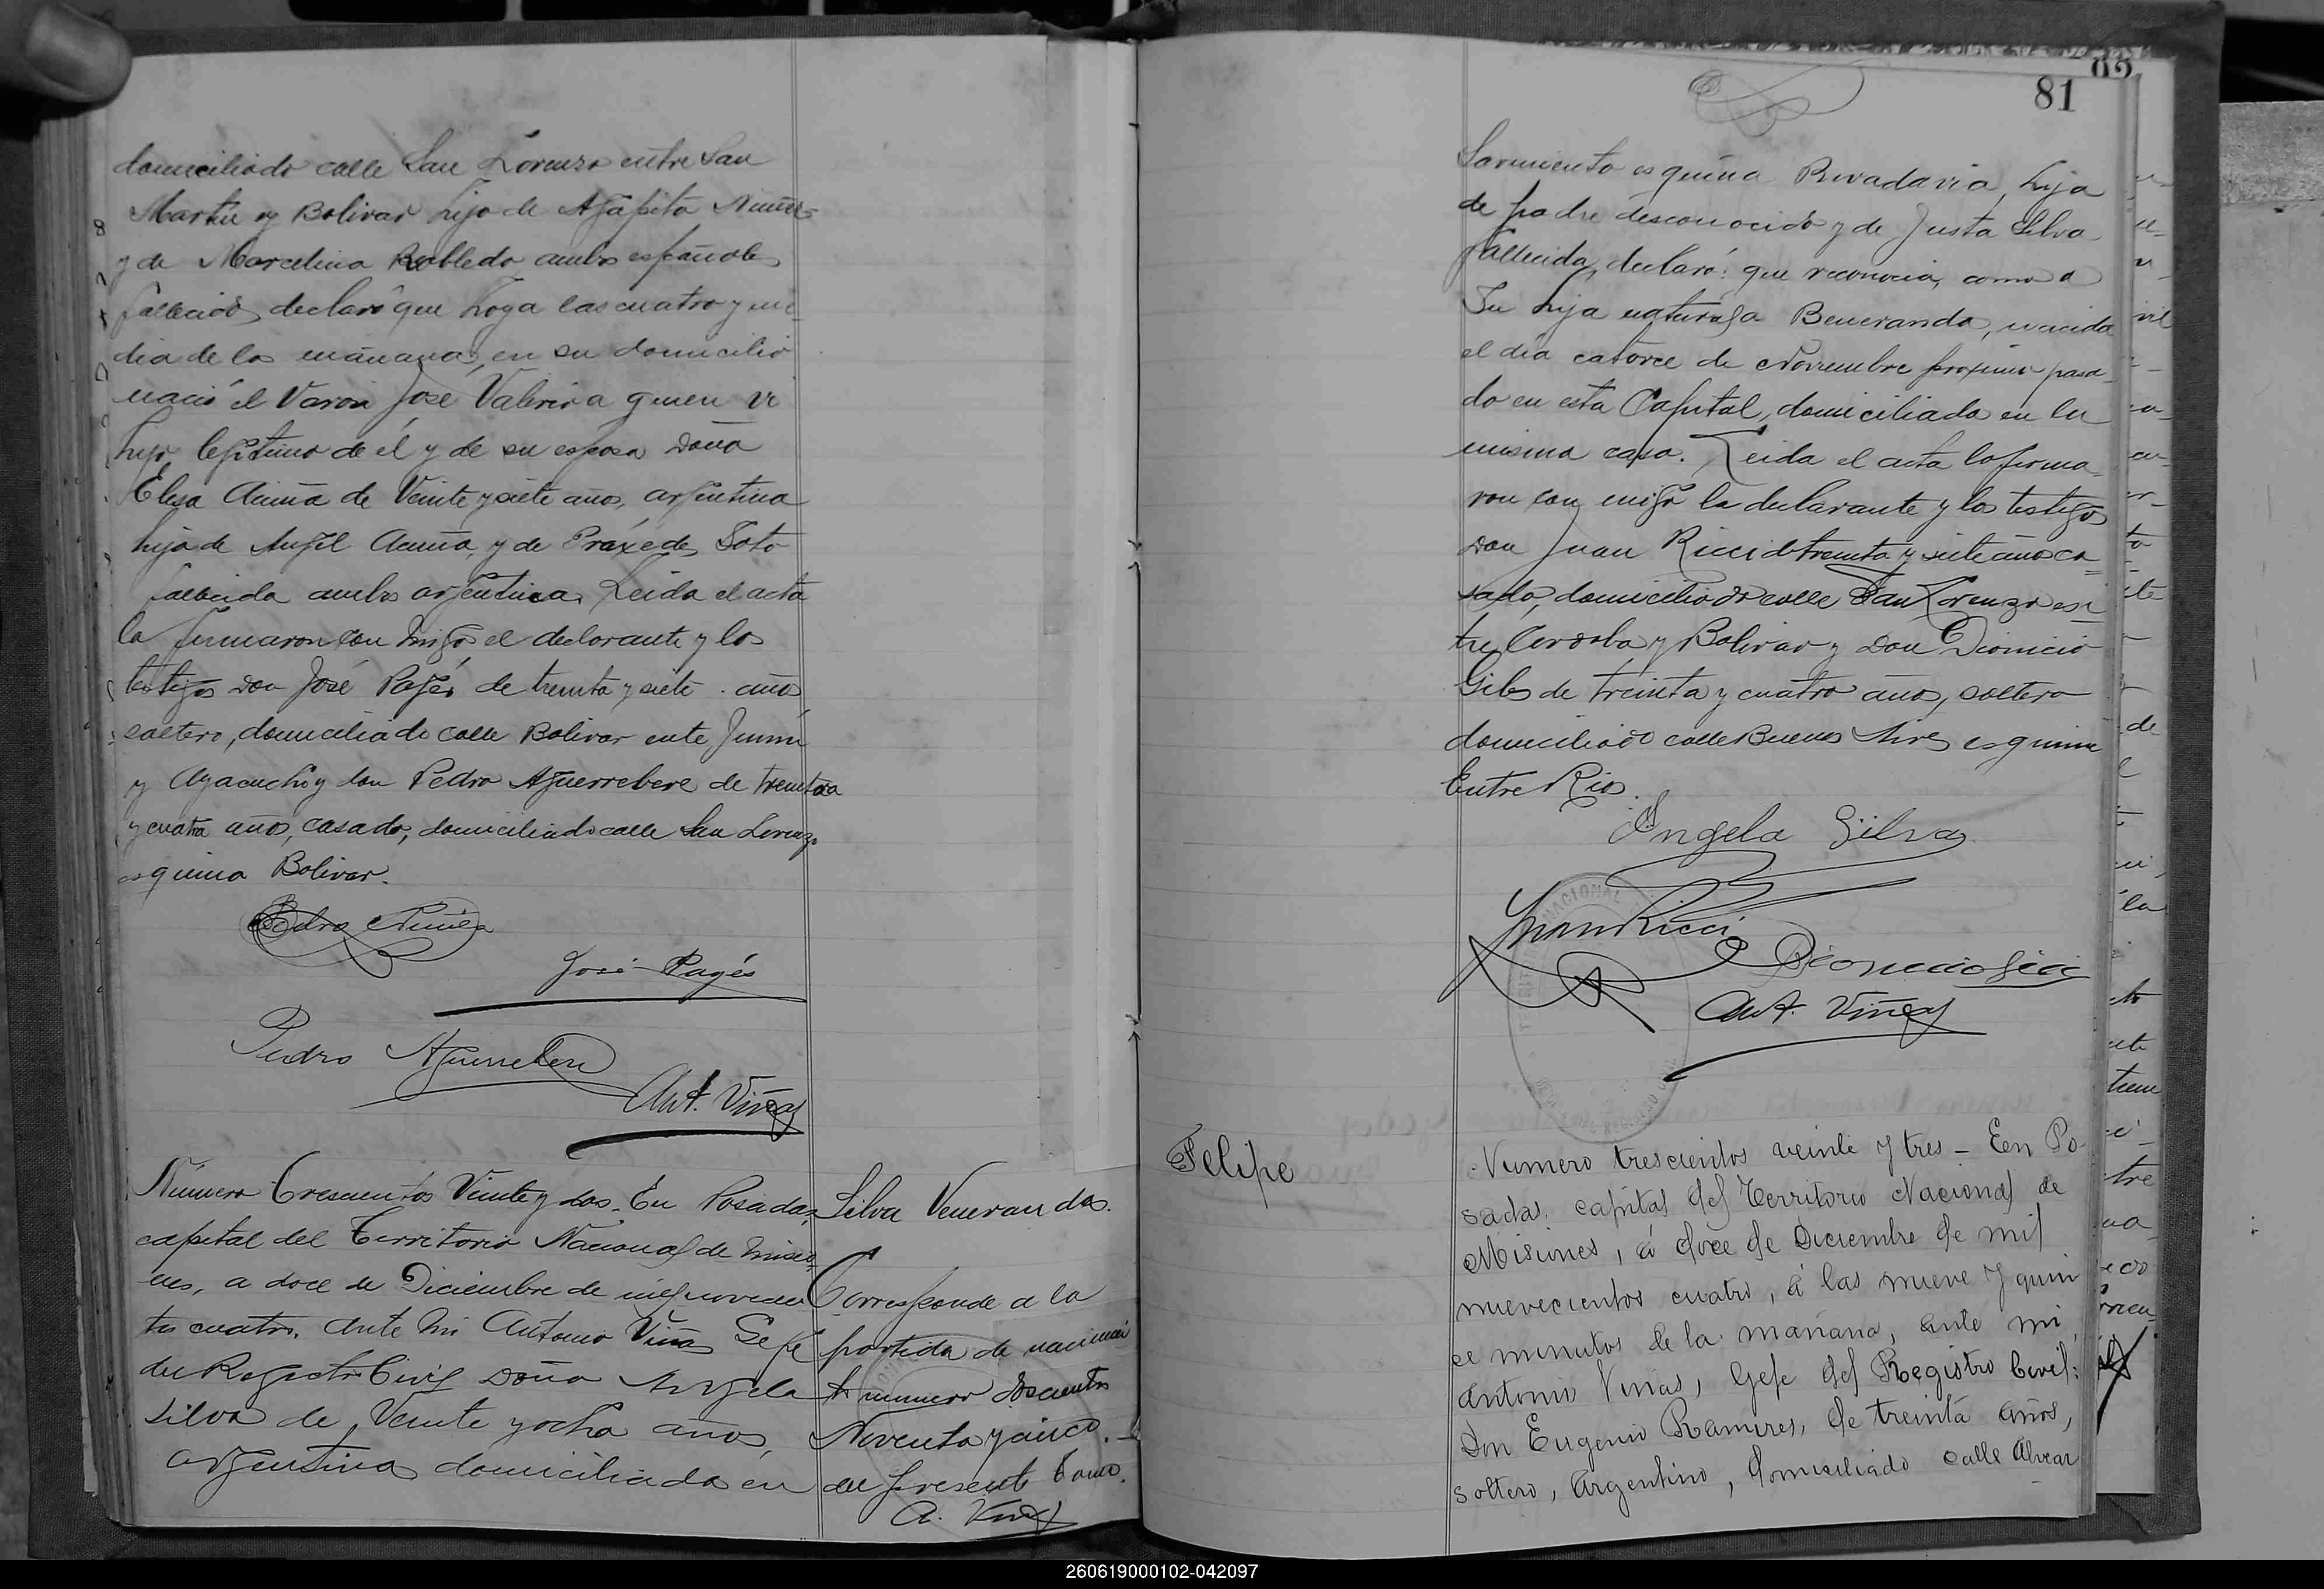 domiciliado calle San Lorenzo entre San
Martin y Bolivar hijo de Agapito Nuñez
y de Marcelina Robledo ambos españoles
fallecidos declaró que hoy a las cuatro y me
dia de la mañana, en su domicilio
nació el varon José Valerio a quien vi
hijo legitimo de él y de su esposa Doña
Elisa Acuña de Veinte y siete años, argentina
hija de Angel Acuña, y de Práxedes Soto
fallecida ambos argentinos. Leida el acta
la firmaron con migo el declarante y los
testigos Don José Pagés de treinta y siete años
soltero, domiciliado calle Bolivar ente Junin
y Ayacucho y don Pedro Aguerrebere de treinta
y cuatro años, casado, domiciliado calle San Lorenzo
esquina Bolivar.
Pedro Nuñez
José Pagés
Pedro Aguerrebere
Ant. Viñas
Número Trescientos Veinte y dos. En Posadas,
capital del Territorio Nacional de Misio
nes, a doce de Diciembre de mil novecien
tos cuatro. Ante mi Antonio Viñas Gefe
del Registro Civil Doña Angela
Silva de Veinte y ocho años,
argentina domiciliada en
Silva Veneranda.
Corresponde a la
partida de nacimien
to numero doscientos
Noventa y cinco.
del presente tomo.
A. Viñas
81
Sarmiento esquina Rivadavia, hija
de padre desconocido y de Justa Silva
fallecida, declaró: que reconocia, como a
Su hija natural a Beneranda, nacida
el dia catorce de Noviembre proximo pasa
do en esta Capital, domiciliada en la
misma casa. Leida el acta la firma
ron con migo la declarante y los testigos
Don Juan Ricci de treinta y siete años ca
sado, domiciliado calle San Lorenzo en
tre Cordoba y Bolivar y Don Dionicio
Giles de treinta y cuatro años, soltero
domiciliado calle Buenos Aires esquina
Entre Rios.
Angela Silva
Juan Ricci
Ant. Viñas
Felipe
Numero trescientos veinte y tres - En Po
sadas, capital del Territorio Nacional de
Misiones, á doce de Diciembre de mil
nuevecientos cuatro, á las nueve y quin
ce minutos de la mañana, ante mi
Antonio Viñas, Gefe del Registro Civil:
Don Eugenio Ramires, de treinta años,
soltero, Argentino, domiciliado calle Alvear
260619000102-042097